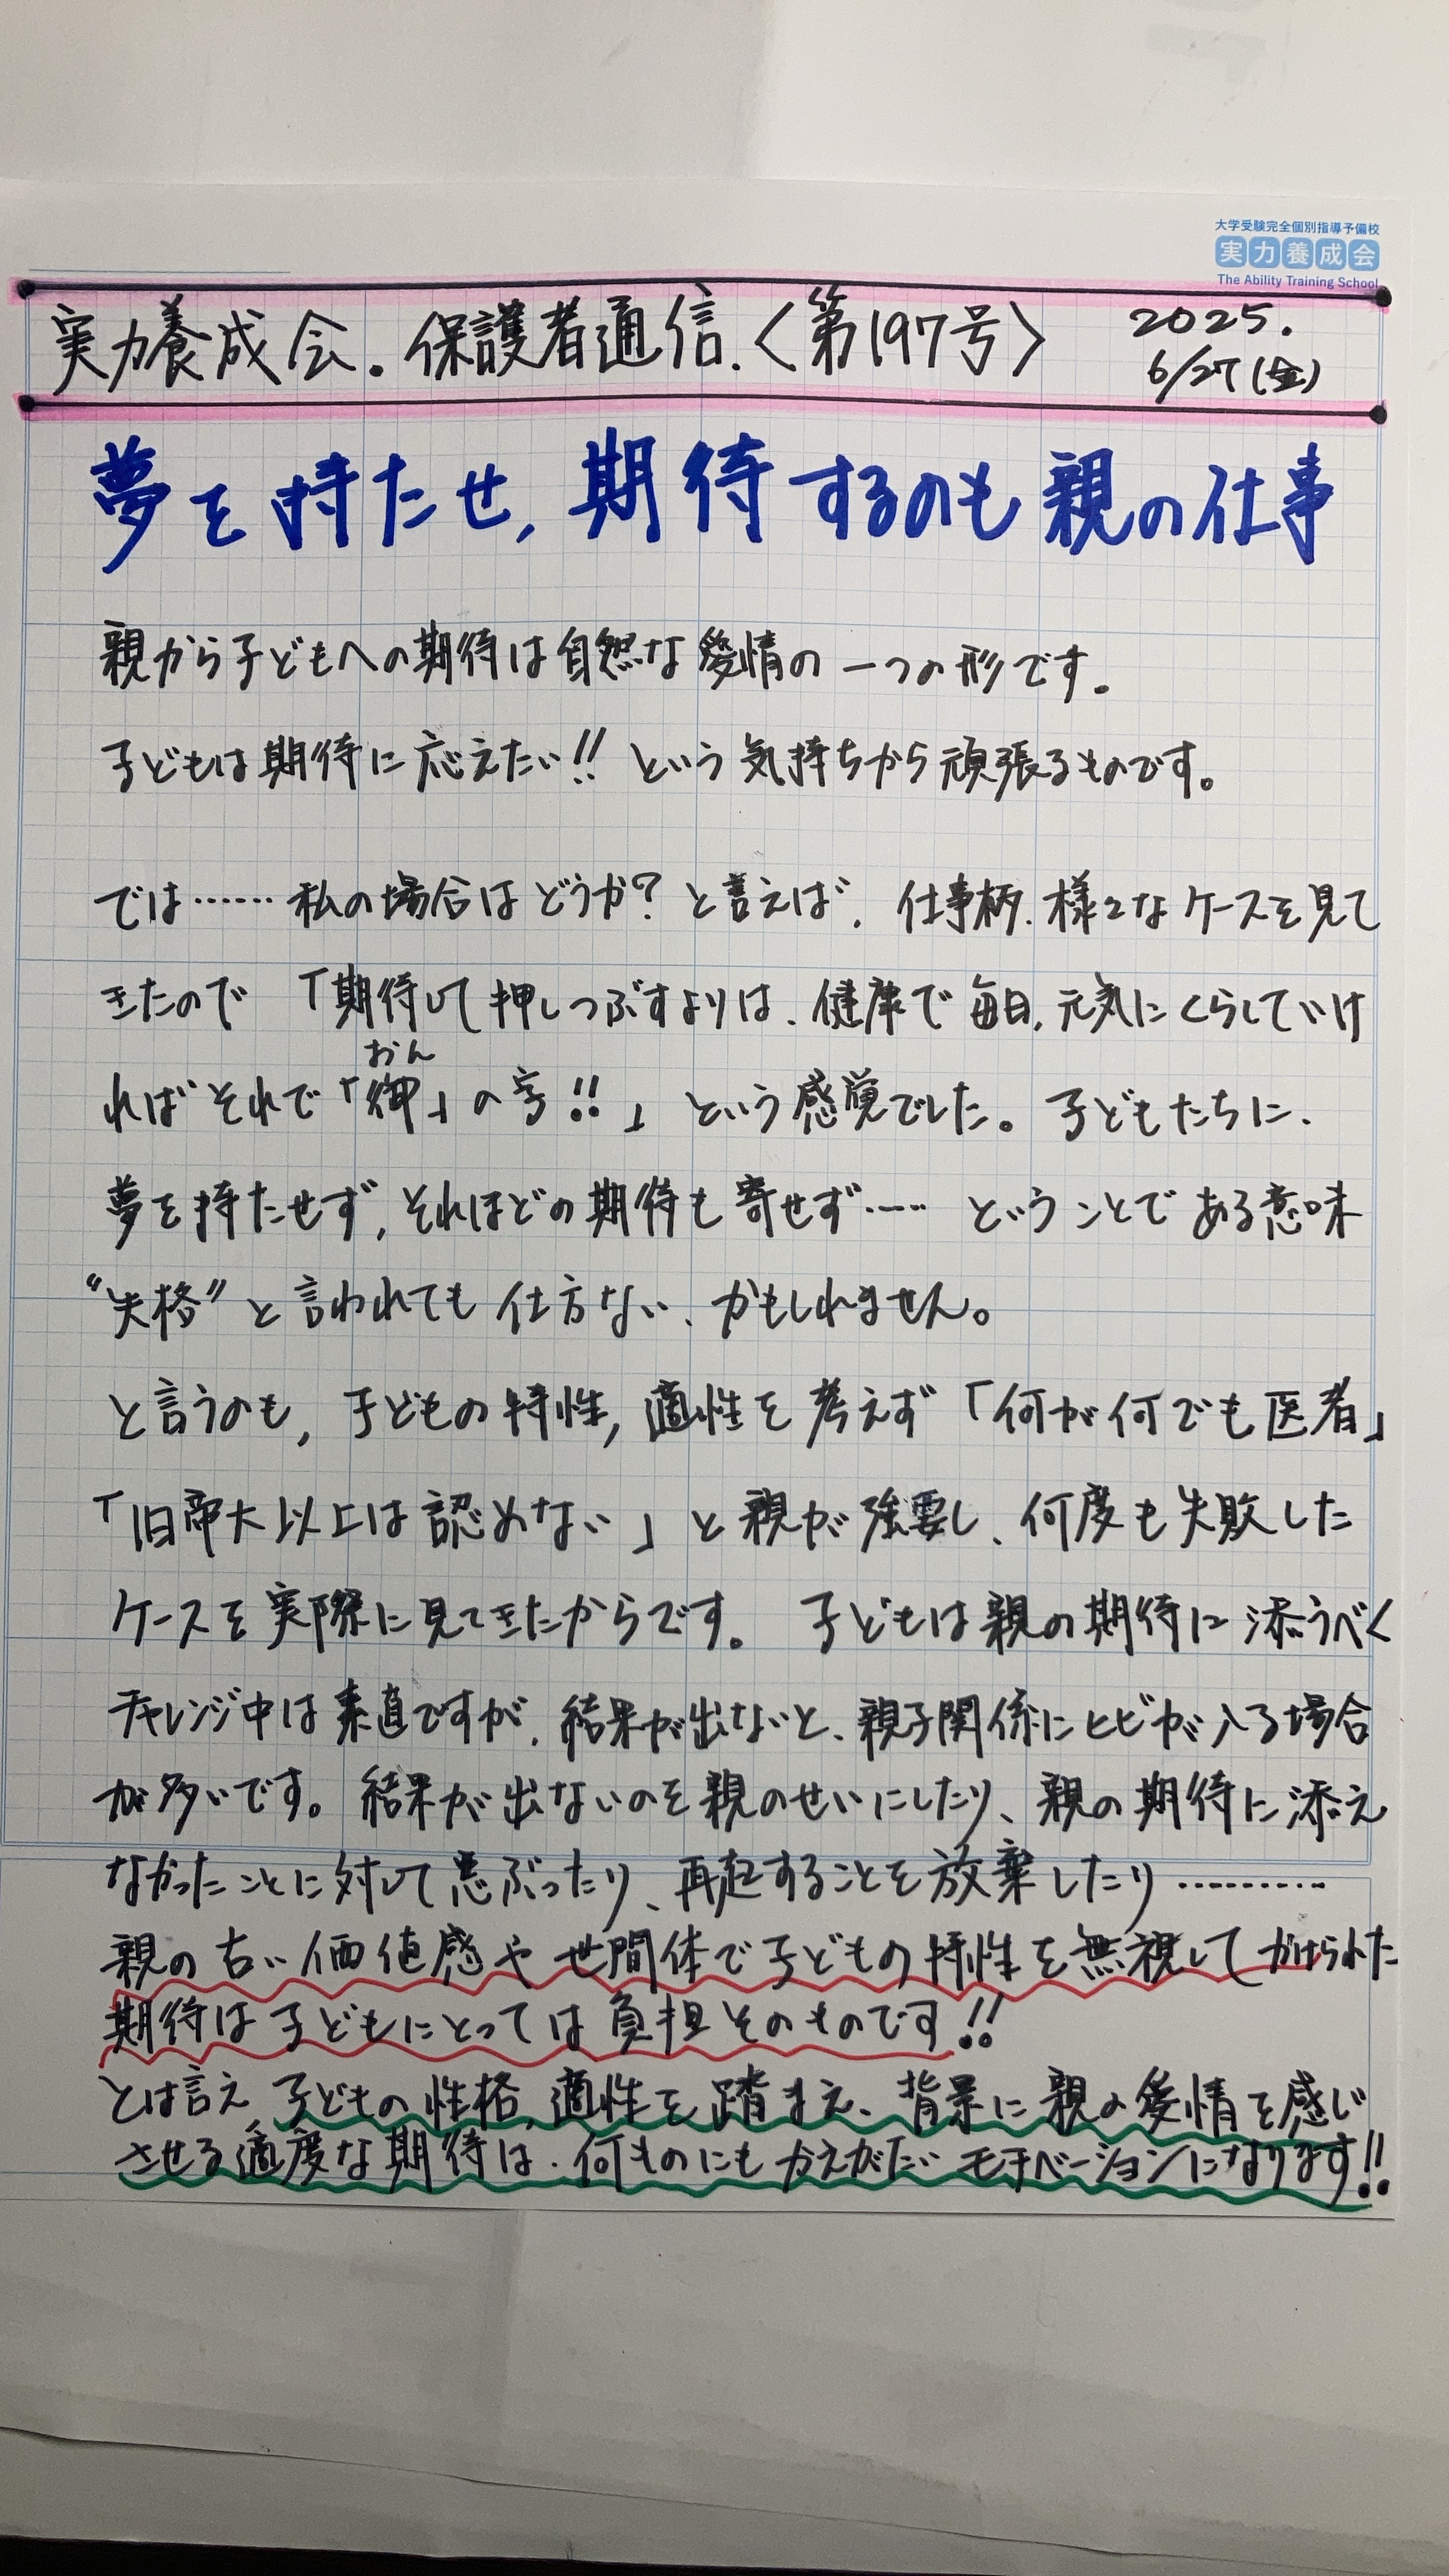 大学受験完全個別指導予備校
実力養成会
The Ability Training School
実力養成会.保護者通信.〈第197号〉 2025.
6/27(金)
夢を持たせ,期待するのも親の仕事
親から子どもへの期待は自然な愛情の一つの形です。
子どもは期待に応えたい!!という気持ちから頑張るものです。
では……私の場合はどうか?と言えば、仕事柄、様々なケースを見て
きたので「期待して押しつぶすよりは、健康で毎日,元気にくらしていけ
おん
ればそれで「御」の字!!」という感覚でした。子どもたちに、
夢を持たせず,それほどの期待も寄せず……ということである意味
“失格”と言われても仕方ない、かもしれません。
と言うのも,子どもの特性,適性を考えず「何が何でも医者」
「旧帝大以上は認めない」と親が強要し、何度も失敗した
ケースを実際に見てきたからです。子どもは親の期待に添うべく
チャレンジ中は素直ですが、結果が出ないと、親子関係にヒビが入る場合
が多いです。結果が出ないのを親のせいにしたり、親の期待に添え
なかったことに対して悪ぶったり、再起することを放棄したり………
親の古い価値感や世間体で子どもの特性を無視してかけられた
期待は子どもにとっては負担そのものです!!
とは言え子どもの性格,適性を踏まえ、背景に親の愛情を感じ
させる適度な期待は、何ものにもかえがたいモチベーションになります!!